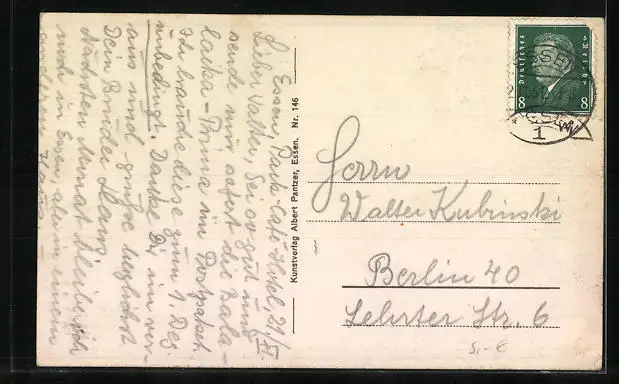 Essen, Park-Café-Hotel, 21/XI.
Lieber Walter, Sei so gut und
sende mir sofort die Bala-
laika-Prima im Postpaket.
Ich brauche diese zum 1. Dez.
unbedingt. Danke Dir im ver-
aus und grüße herzlichst
Dein Bruder Hans
Nächsten Monat bleibe ich
noch in Essen, aber in einem
anderen
Kunstverlag Albert Pantzer, Essen. Nr. 146
Deutsches Reich
8 8
ESSEN
1
Herrn
Walter Kubinski
Berlin 40
Lehrter Str. 6